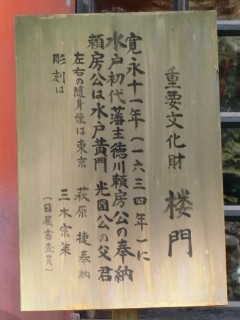 重要文化財
楼門
寛永十一年(一六三四年)に
水戸初代藩主徳川頼房公の奉納
頼房公は水戸黄門 光圀公の父君
左右の随身像は東京 萩原 捷奉納
彫刻は 三木宗策
(日展審査員)